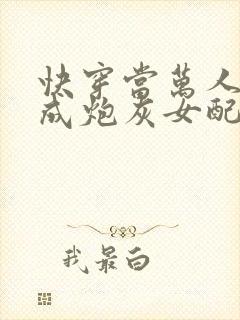 快穿當萬人
成炮灰女配
我最白